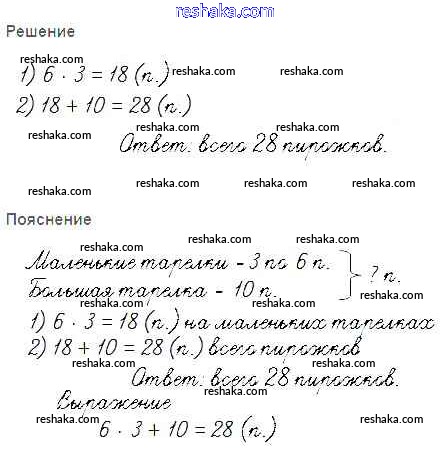 reshaka.com
Решение
reshaka.com
1) 6 · 3 = 18 (п.) reshaka.com reshaka.com
reshaka.com
2) 18 + 10 = 28 (п.)
reshaka.com reshaka.com reshaka.com
Ответ: всего 28 пирожков.
reshaka.com reshaka.com reshaka.com
Пояснение
reshaka.com reshaka.com reshaka.com
Маленькие тарелки - 3 по 6 п.
reshaka.com reshaka.com reshaka.com ? п.
Большая тарелка - 10 п.
reshaka.com
1) 6 · 3 = 18 (п.) на маленьких тарелках
reshaka.com reshaka.com reshaka.com
2) 18 + 10 = 28 (п.) всего пирожков
reshaka.com reshaka.com reshaka.com
Ответ: всего 28 пирожков.
reshaka.com reshaka.com
Выражение
reshaka.com reshaka.com reshaka.com
6 · 3 + 10 = 28 (п.)
reshaka.com reshaka.com